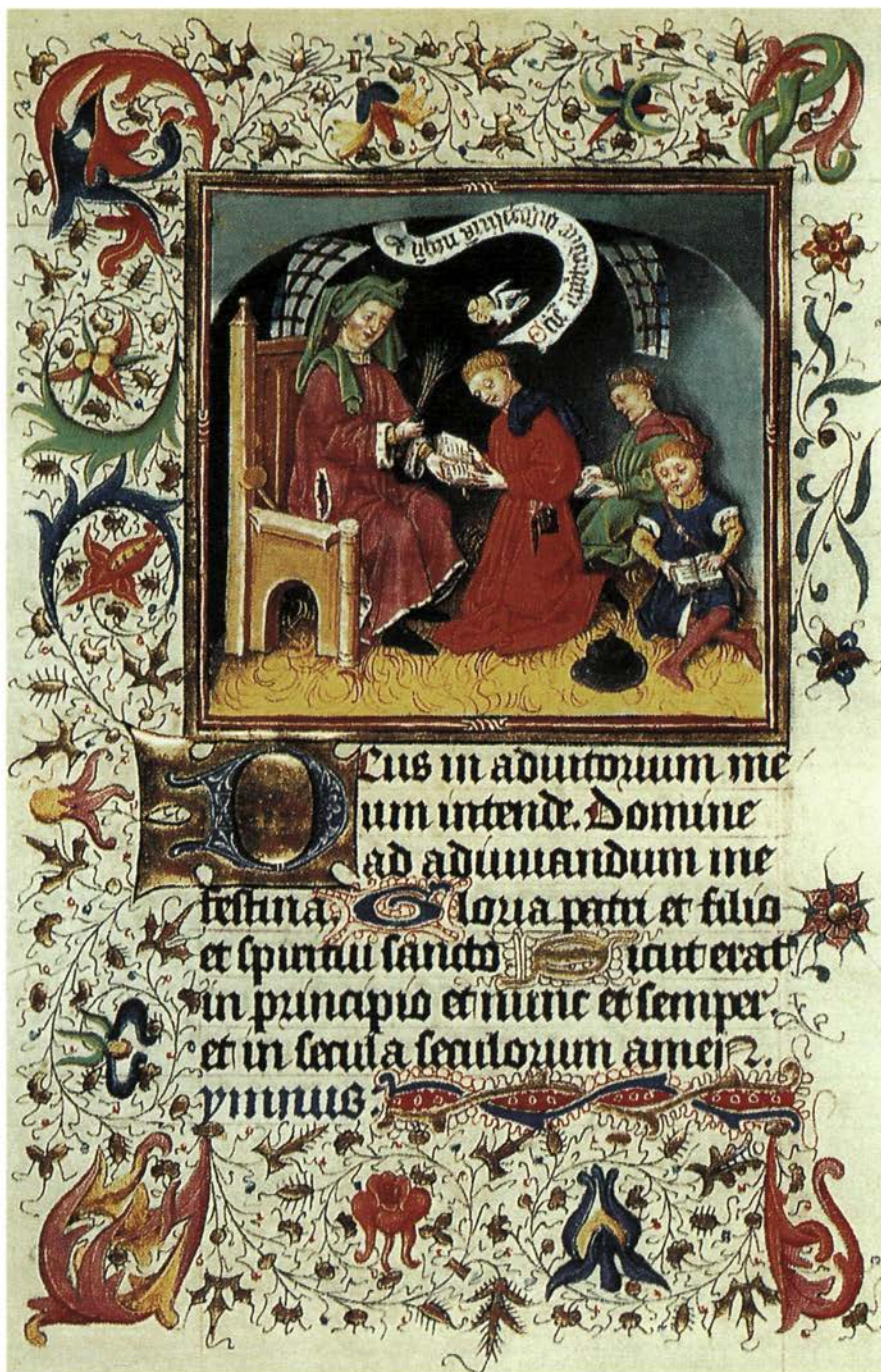 Deus in adiutorium me
um intende. Domine
ad adiuuandum me
festina. Gloria patri et filio
et spiritui sancto Sicut erat
in principio et nunc et semper.
et in secula seculorum amen.
ymnus.